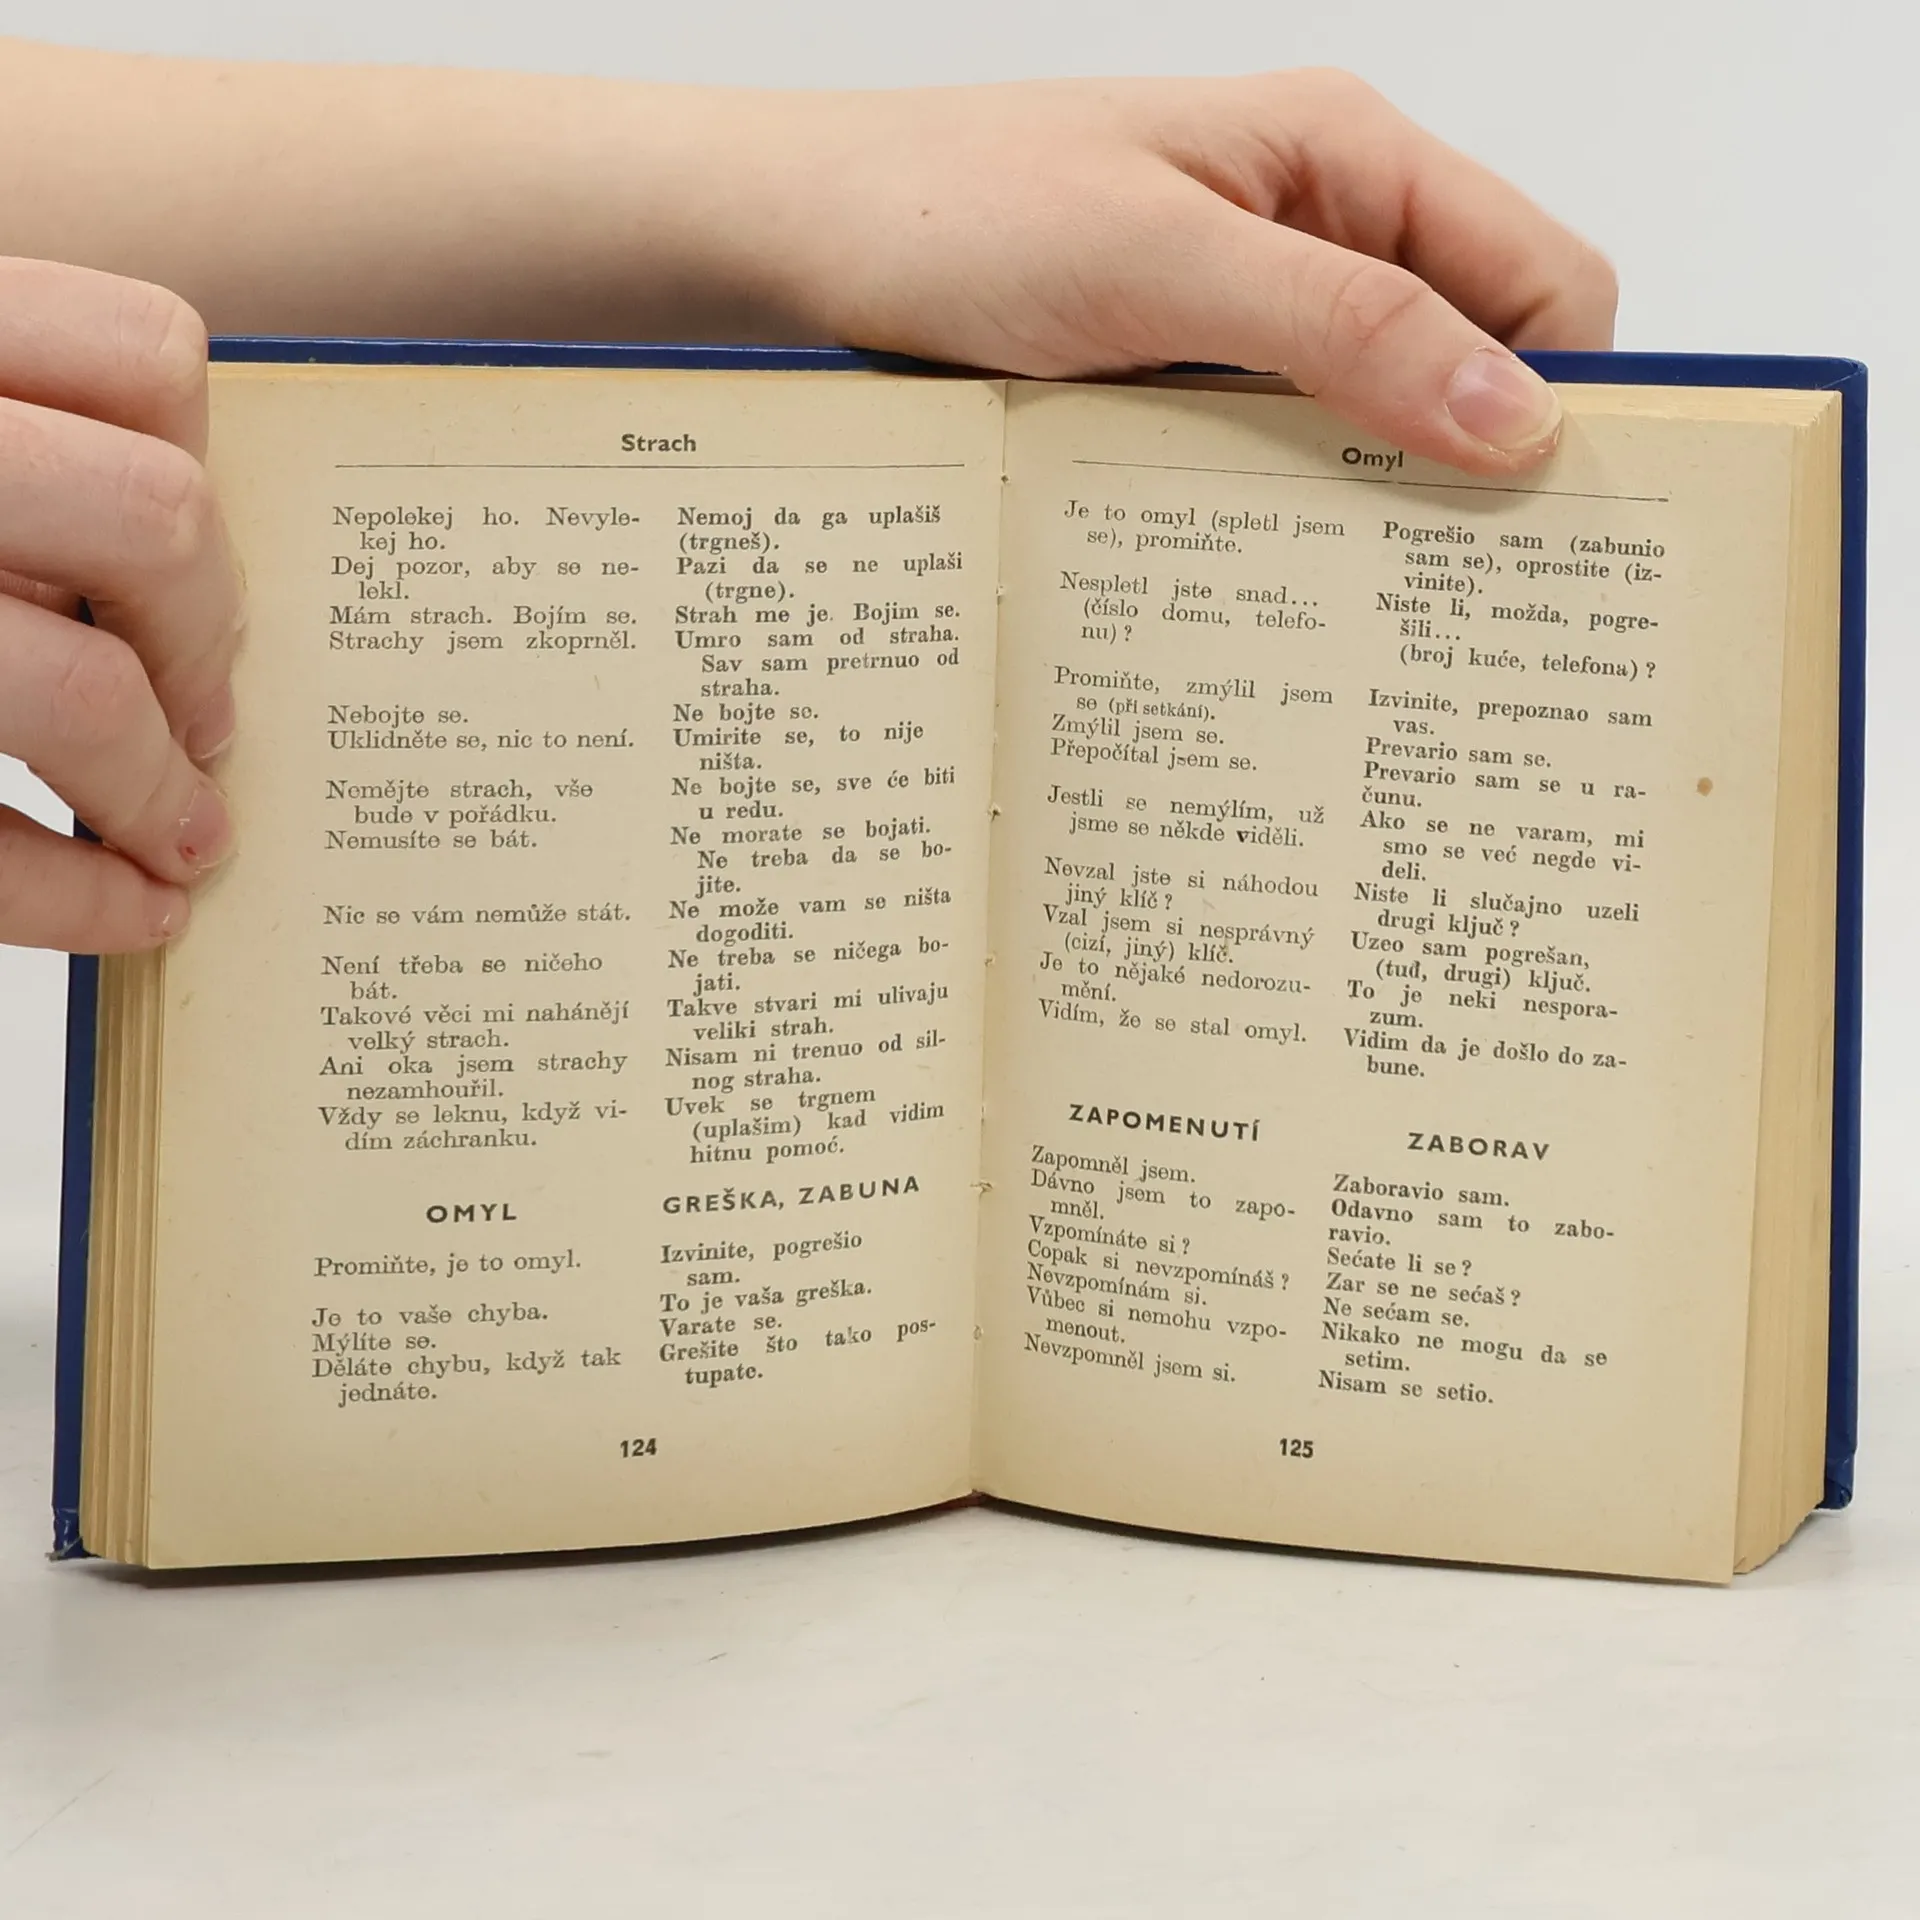 Strach
Nepolekej ho. Nevyle-
kej ho.
Dej pozor, aby se ne-
lekl.
Mám strach. Bojím se.
Strachy jsem zkoprněl.
Nebojte se.
Uklidněte se, nic to není.
Nemějte strach, vše
bude v pořádku.
Nemusíte se bát.
Nic se vám nemůže stát.
Není třeba se ničeho
bát.
Takové věci mi nahánějí
velký strach.
Ani oka jsem strachy
nezamhouřil.
Vždy se leknu, když vi-
dím záchranku.
OMYL
Promiňte, je to omyl.
Je to vaše chyba.
Mýlíte se.
Děláte chybu, když tak
jednáte.
Nemoj da ga uplašiš
(trgneš).
Pazi da se ne uplaši
(trgne).
Strah me je. Bojim se.
Umro sam od straha.
Sav sam pretrnuo od
straha.
Ne bojte se.
Umirite se, to nije
ništa.
Ne bojte se, sve će biti
u redu.
Ne morate se bojati.
Ne treba da se bo-
jite.
Ne može vam se ništa
dogoditi.
Ne treba se ničega bo-
jati.
Takve stvari mi ulivaju
veliki strah.
Nisam ni trenuo od sil-
nog straha.
Uvek se trgnem
(uplašim) kad vidim
hitnu pomoć.
GREŠKA, ZABUNA
Izvinite, pogrešio
sam.
To je vaša greška.
Varate se.
Grešite što tako pos-
tupate.
124
Omyl
Je to omyl (spletl jsem
se), promiňte.
Nespletl jste snad...
(číslo domu, telefo-
nu) ?
Promiňte, zmýlil jsem
se (při setkání).
Zmýlil jsem se.
Přepočítal jsem se.
Jestli se nemýlím, už
jsme se někde viděli.
Nevzal jste si náhodou
jiný klíč ?
Vzal jsem si nesprávný
(cizí, jiný) klíč.
Je to nějaké nedorozu-
mění.
Vidím, že se stal omyl.
ZAPOMENUTÍ
Zapomněl jsem.
Dávno jsem to zapo-
mněl.
Vzpomínáte si ?
Copak si nevzpomínáš ?
Nevzpomínám si.
Vůbec si nemohu vzpo-
menout.
Nevzpomněl jsem si.
Pogrešio sam (zabunio
sam se), oprostite (iz-
vinite).
Niste li, možda, pogre-
šili...
(broj kuće, telefona) ?
Izvinite, prepoznao sam
vas.
Prevario sam se.
Prevario sam se u ra-
čunu.
Ako se ne varam, mi
smo se već negde vi-
deli.
Niste li slučajno uzeli
drugi ključ ?
Uzeo sam pogrešan,
(tuđ, drugi) ključ.
To je neki nespora-
zum.
Vidim da je došlo do za-
bune.
ZABORAV
Zaboravio sam.
Odavno sam to zabo-
ravio.
Sećate li se ?
Zar se ne sećaš ?
Ne sećam se.
Nikako ne mogu da se
setim.
Nisam se setio.
125